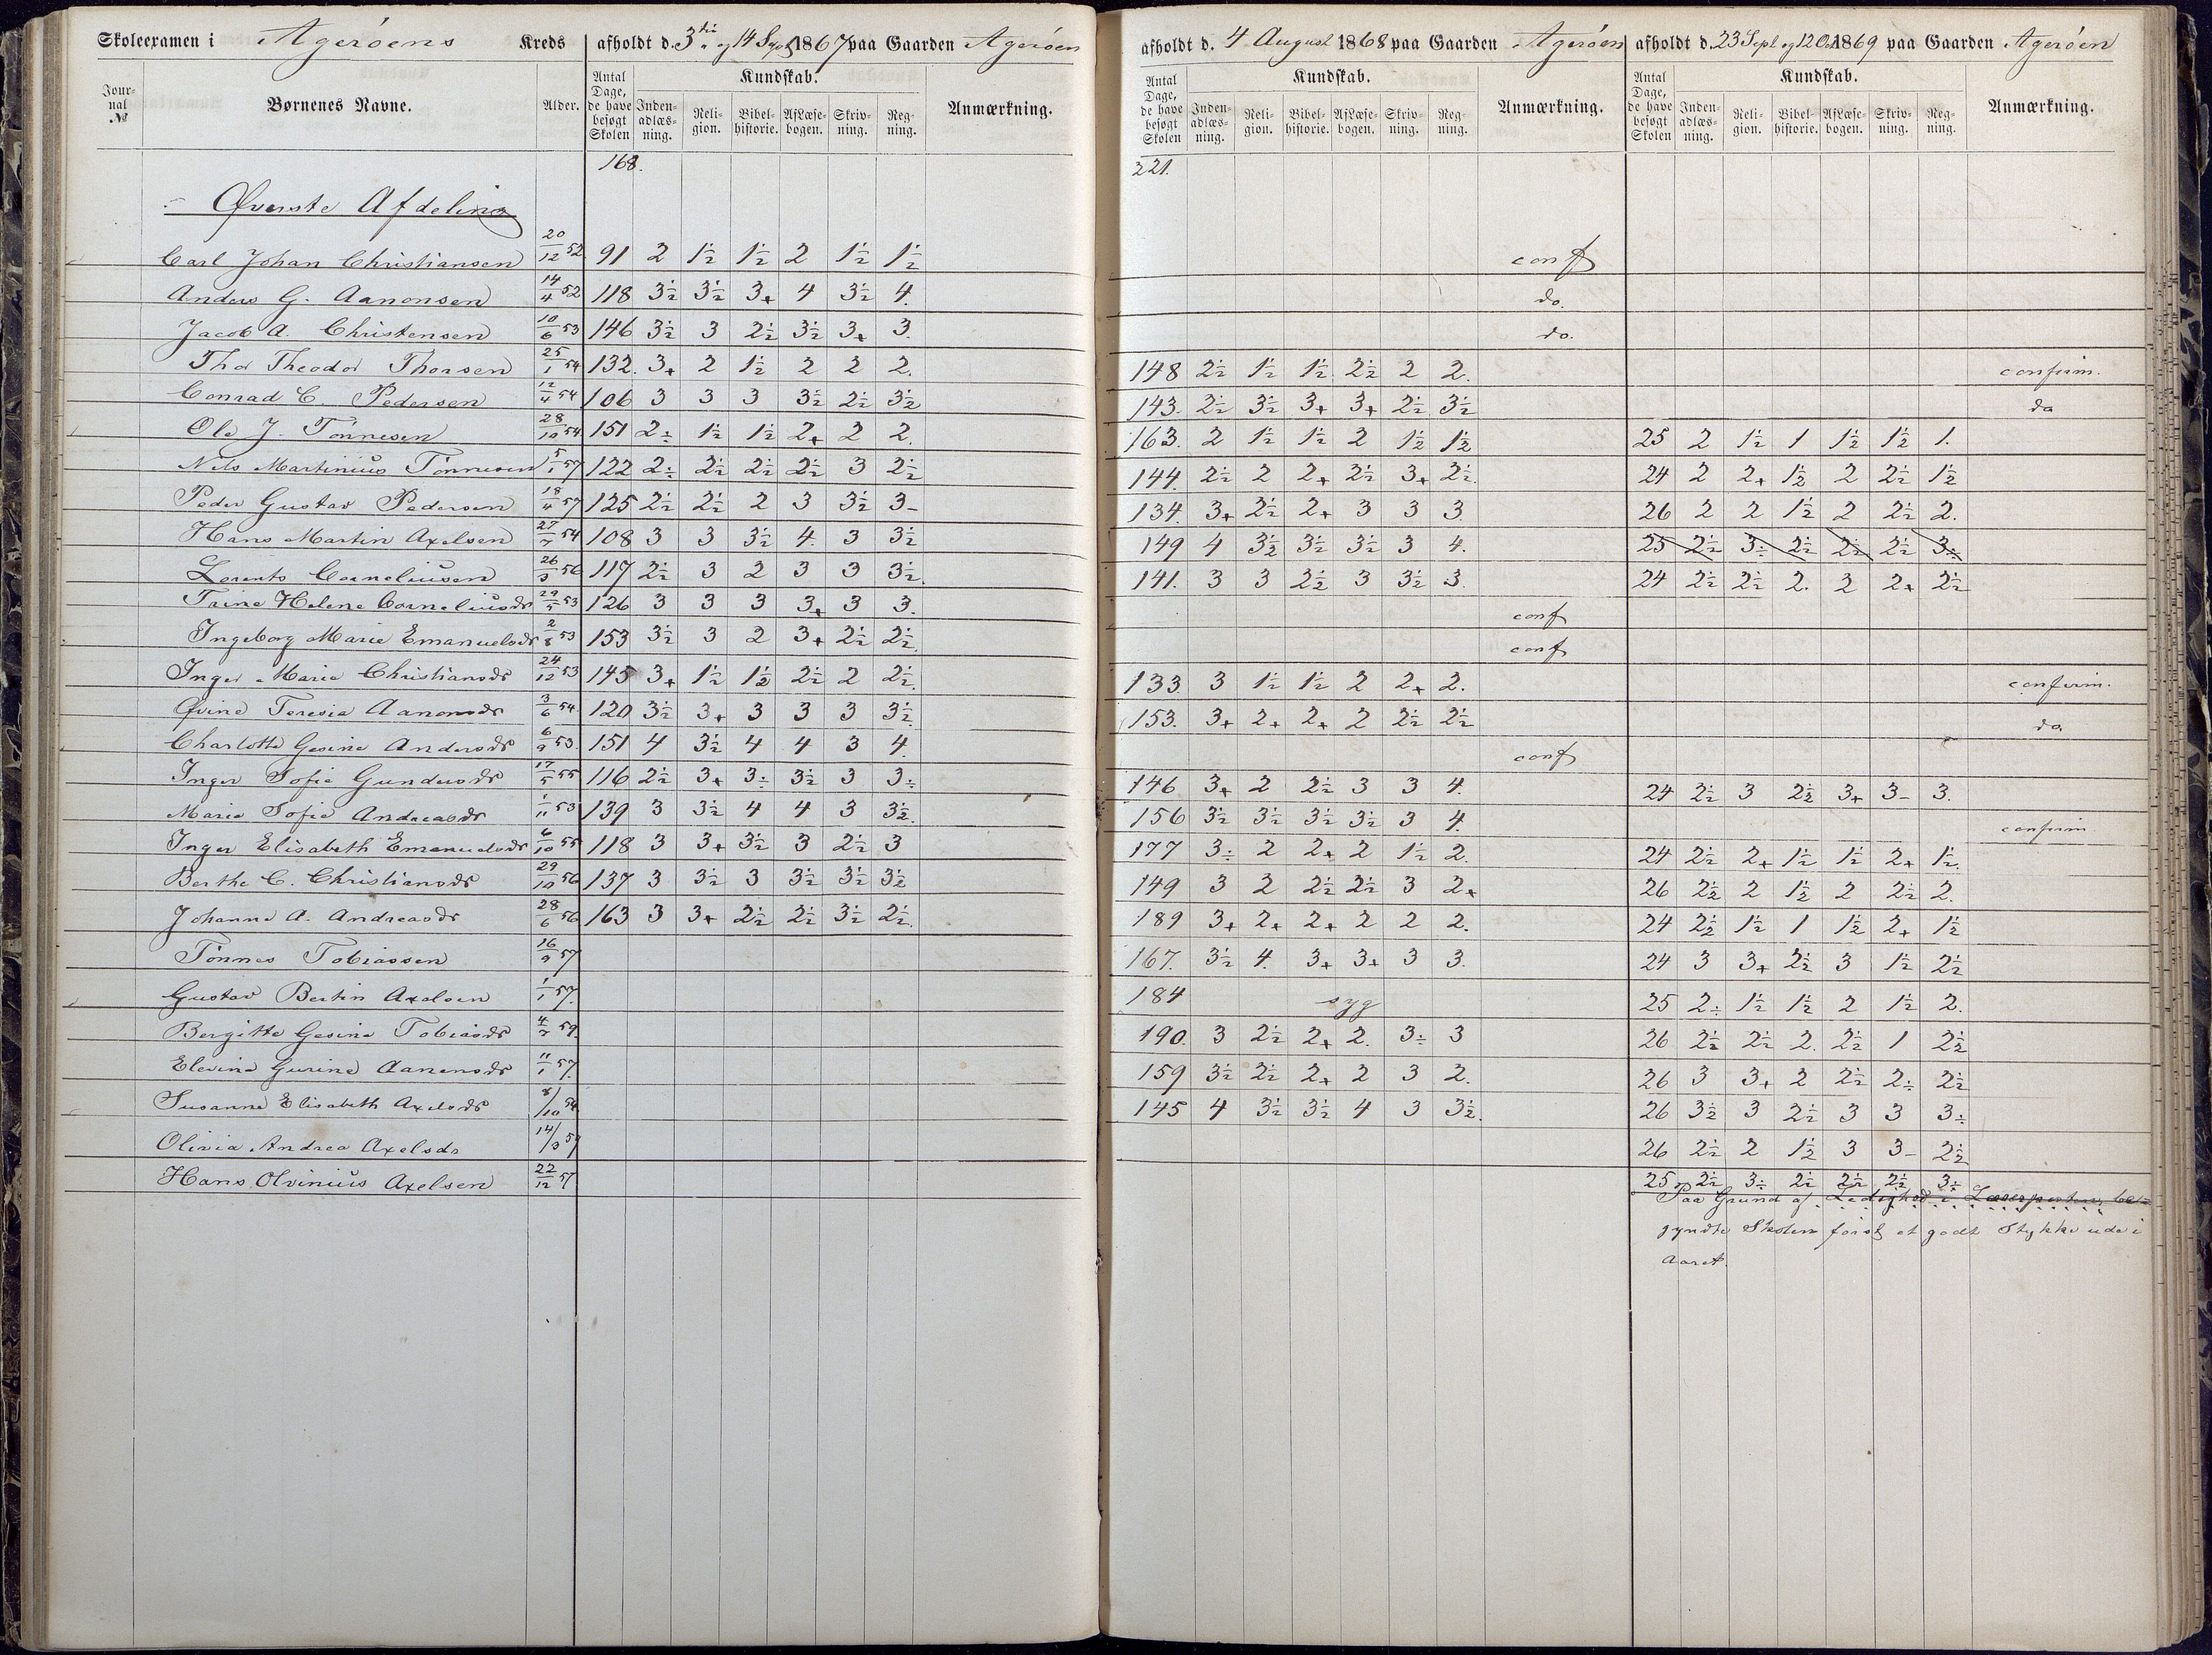 Skoleexamen i Agerøens Kreds afholdt d. 3 og 14 1867 paa Gaarden Agerøen
Jour-nal № Børnenes Navne. Alder. Antal Dage, de have besøgt Skolen Kundskab. Inden-adlæs-ning. Reli-gion. Bibel-historie. AfLæse-bogen. Skriv-ning. Reg-ning. Anmærkning.
168.
Øverste Afdeling
Carl Johan Christiansen 20/12 52 91 2 1½ 1½ 2 1½ 1½
Anders G. Aanonsen 14/4 52 118 3½ 3½ 3+ 4 3½ 4.
Jacob A. Christensen 10/6 53 146 3½ 3 2½ 3½ 3+ 3.
Thor Theodor Thorsen 25/1 54 132. 3+ 2 1½ 2 2 2.
Conrad C. Pedersen 12/4 54 106 3 3 3 3½ 2½ 3½
Ole J. Tönnesen 28/10 54 151 2÷ 1½ 1½ 2+ 2 2.
Nils Martinius Tönnesen 5/1 57 122 2÷ 2½ 2½ 2½ 3 2½
Peder Gustav Pedersen 18/4 57 125 2½ 2½ 2 3 3½ 3-
Hans Martin Axelsen 27/7 54 108 3 3 3½ 4. 3 3½
Lorents Corneliusen 26/3 56 117 2½ 3 2 3 3 3½.
Trine Helene Corneliusdr 29/5 53 126 3 3 3 3+ 3 3.
Ingeborg Marie Emanuelsdr 2/8 53 153 3½ 3 2 3+ 2½ 2½.
Inger Marie Christiansdr 24/12 53 145 3+ 1½ 1½ 2½ 2 2½.
Øvine Teresia Aanonsdr 3/6 54. 120 3½ 3+ 3 3 3 3½.
Charlotte Gesine Andersdr 6/9 53. 151 4 3½ 4 4 3 4.
Inger Sofie Gundersdr 17/5 55 116 2½ 3+ 3÷ 3½ 3 3÷
Maria Sofie Andreasdr 1/11 53 139 3 3½ 4 4 3 3½.
Inger Elisabeth Emanuelsdr 6/10 55 118 3 3+ 3½ 3 2½ 3
Berthe C. Christiansdr 29/10 56 137 3 3½ 3 3½ 3½ 3½
Johanne A. Andreasdr 28/6 56 163 3 3+ 2½ 2½ 3½ 2½.
Tönnes Tobiassen 16/9 57
Gustav Bertin Axelsen 1/1 57.
Bergitte Gesine Tobiasdr 4/7 59.
Elevine Gurine Aanensdr 11/1 57.
Susanne Elisabeth Axelsdr 8/10 54
Olivia Andrea Axelsdr 14/3 57
Hans Olvinius Axelsen 22/12 57
afholdt d. 4 August 1868 paa Gaarden Agerøen
Antal Dage, de have besøgt Skolen Kundskab. Inden-adlæs-ning. Reli-gion. Bibel-historie. AfLæse-bogen. Skriv-ning. Reg-ning. Anmærkning.
221.
conf
do.
do.
148 2½ 1½ 1½ 2½ 2 2.
143. 2½ 3½ 3+ 3+ 2½ 3½
163. 2 1½ 1½ 2 1½ 1½
144. 2½ 2 2+ 2½ 3+ 2½.
134. 3+ 2½ 2+ 3 3 3.
149 4 3½ 3½ 3½ 3 4.
141. 3 3 2½ 3 3½ 3.
conf
conf
133. 3 1½ 1½ 2 2+ 2.
153. 3+ 2+ 2+ 2 2½ 2½
conf
146 3+ 2 2½ 3 3 4.
156 3½ 3½ 3½ 3½ 3 4.
177 3÷ 2 2+ 2 1½ 2.
149 3 2 2½ 2½ 3 2+
189 3+ 2+ 2+ 2 2 2.
167. 3½ 4. 3+ 3+ 3 3.
184 syg
190. 3 2½ 2+ 2. 3÷ 3
159 3½ 2½ 2+ 2 3 2.
145 4 3½ 3½ 4 3 3½.
afholdt d. 23 Sept og 12 Oct 1869 paa Gaarden Agerøen
Antal Dage, de have besøgt Skolen Kundskab. Inden-adlæs-ning. Reli-gion. Bibel-historie. AfLæse-bogen. Skriv-ning. Reg-ning. Anmærkning.
confirm.
do
25 2 1½ 1 1½ 1½ 1.
24 2 2+ 1½ 2 2½ 1½
26 2 2 1½ 2 2½ 2.
25 2½ 3÷ 2½ 2½ 2½ 3÷
24 2½ 2½ 2. 2 2+ 2½
confirm.
do
24 2½ 3 2½ 3+ 3- 3.
confirm
24 2½ 2+ 1½ 1½ 2+ 1½.
26 2½ 2 1½ 2 2½ 2.
24 2½ 1½ 1 1½ 2+ 1½
24 3 3+ 2½ 3 1½ 2½
25 2÷ 1½ 1½ 2 1½ 2.
26 2½ 2½ 2. 2½ 1 2½
26 3 3+ 2 2½ 2÷ 2½
26 3½ 3 2½ 3 3 3÷
26 2½ 2 1½ 3 3- 2½
25 2½ 3÷ 2½ 2½ 2½ 3÷
Paa Grund af Ledighed i Lærerposten be=
gyndte Skolen først et godt Stykke ude i
Aaret.